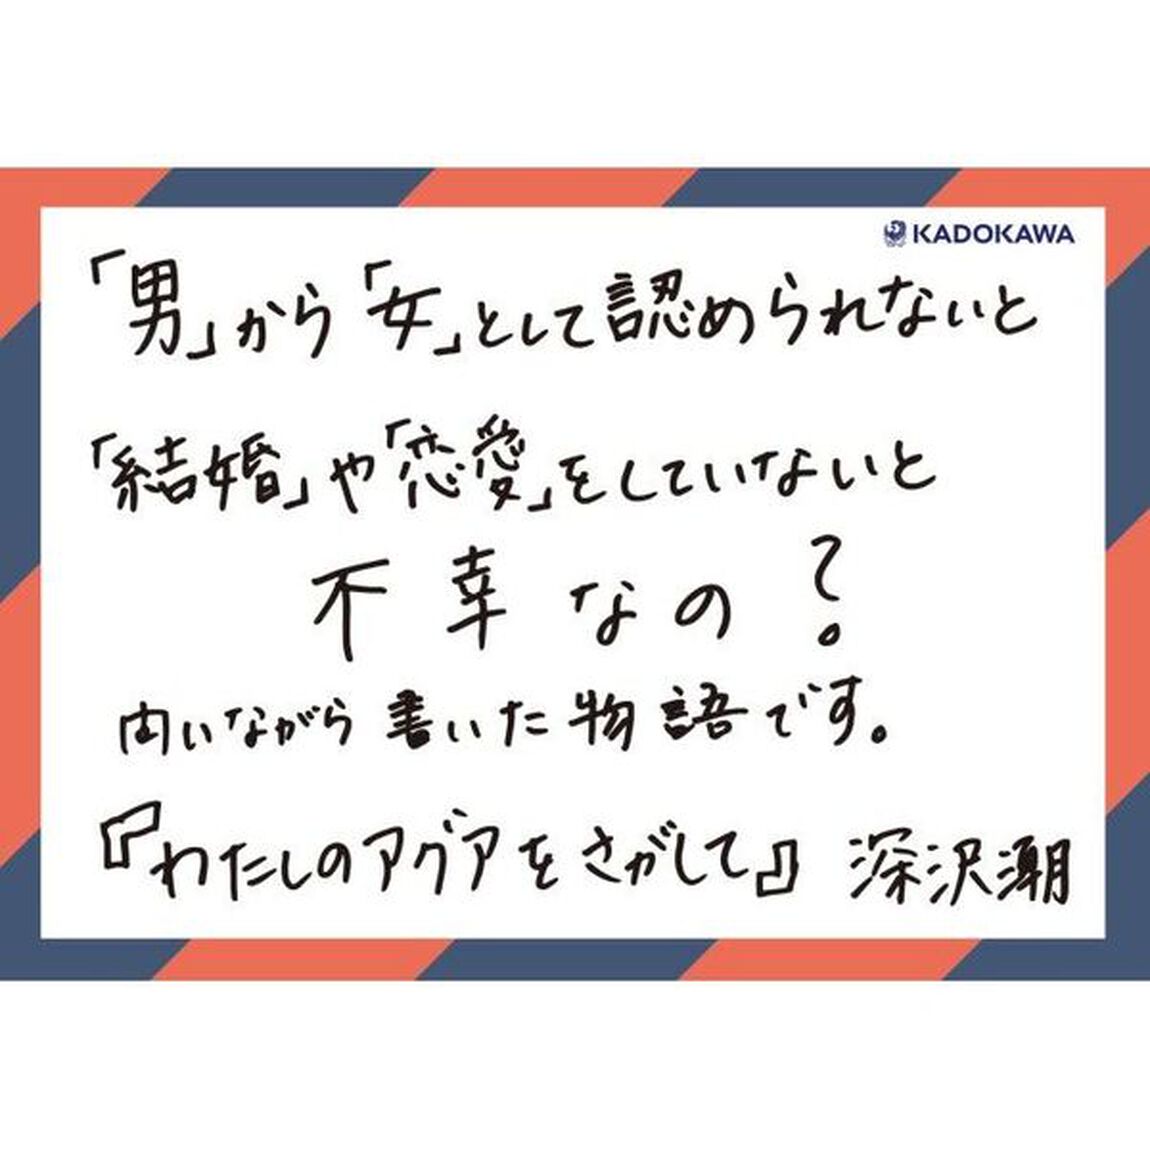 KADOKAWA
「男」から「女」として認められないと
「結婚」や「恋愛」をしていないと
不幸なの？
問いながら書いた物語です。
『わたしのアグアをさがして』 深沢潮